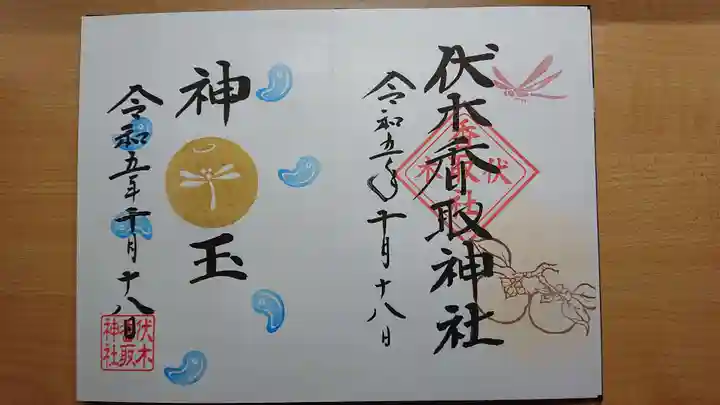 伏木香取神社
令和五年十月十八日
伏木香取神社
神玉
令和五年十月十八日
伏木香取神社